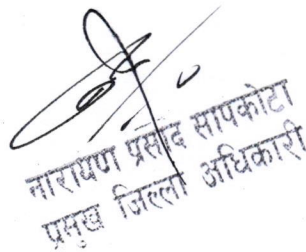 नारायण प्रसाद सापकोटा
प्रमुख जिल्ला अधिकारी